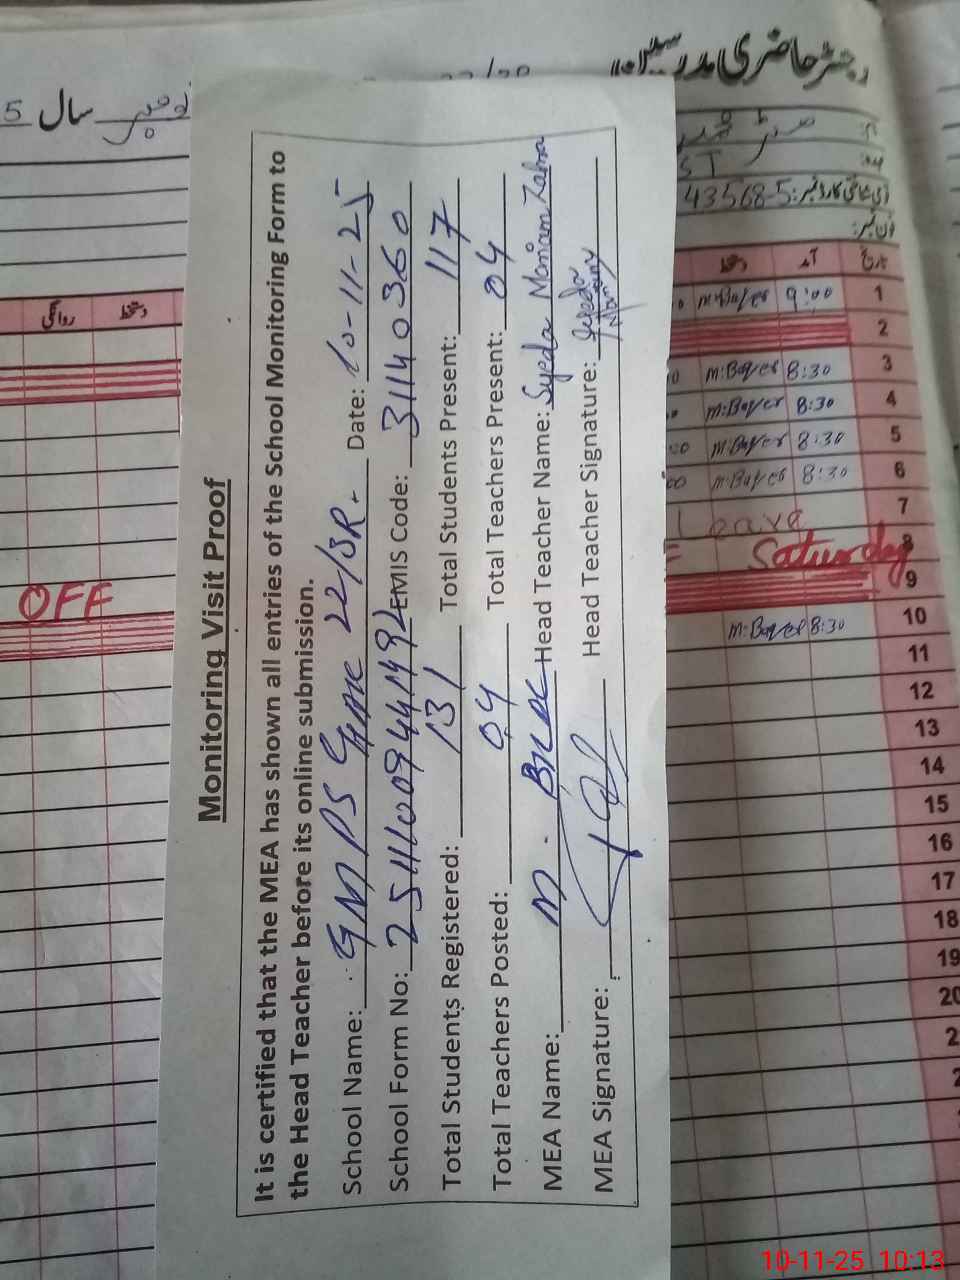 رجسٹر حاضری مدرسین
سال
5
ST
43568-5
فون نمبر:
تاریخ
آمد
دستخط
دستخط
روانگی
1 9:00
2
3 8:30
4 8:30
5 8:30
6 8:30
7 Leave
8 Saturday
9
10 8:30
11
12
13
14
15
16
17
18
19
20
OFF
Monitoring Visit Proof
It is certified that the MEA has shown all entries of the School Monitoring Form to
the Head Teacher before its online submission.
School Name: GMPS 22/BR. Date: 10-11-25
School Form No: EMIS Code: 31140360
Total Students Registered: 131 Total Students Present: 117
Total Teachers Posted: 04 Total Teachers Present: 04
MEA Name: M. Head Teacher Name: Syeda Mariam Zahra
MEA Signature: Head Teacher Signature: Syeda
10-11-25 10:13